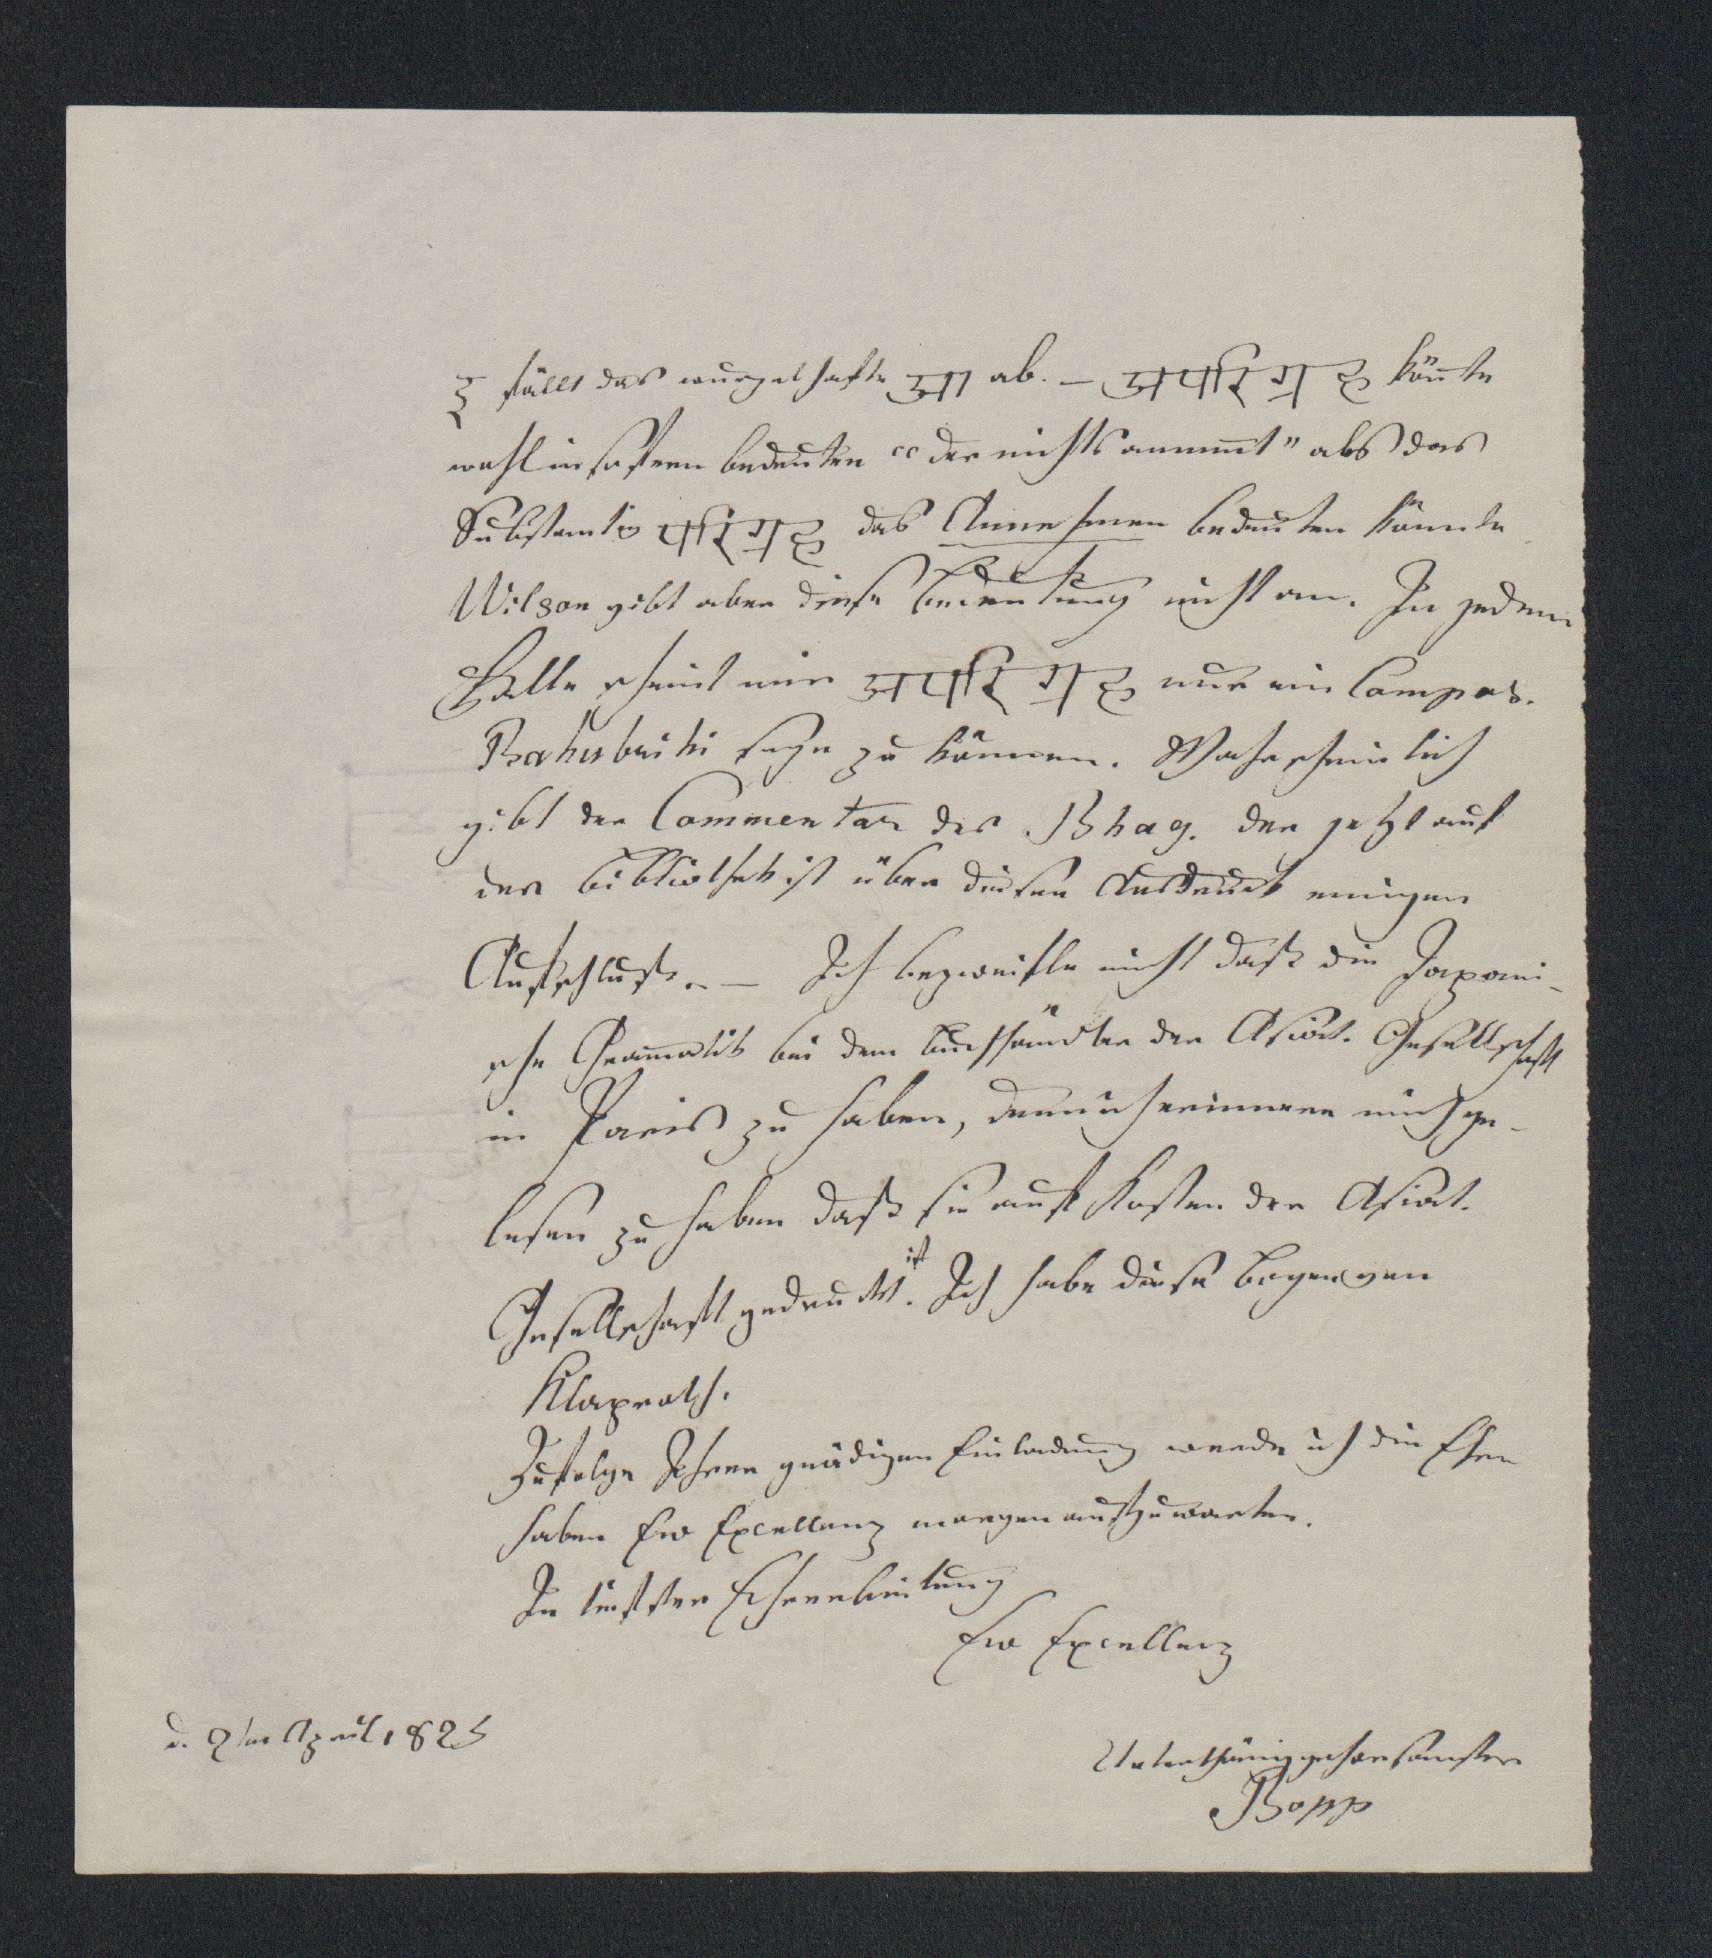 इ fällt das wurzelhafte आ ab. – अपरिग्रह könnte
wohl insofern bedeuten “der nichts annim̄t” als das
Substantiv परिग्रह das Annehmen bedeuten könnte
Wilson gibt aber diese Bedeutung nicht an. In jedem
Falle scheint mir अपरिग्रह nur ein Compos.
Bahubrihi seyn zu können. Wahrscheinlich
gibt der Commentar des Bhag. der jetzt auf
der Bibliothek ist über diesen Ausdruck einigen
Aufschluß. – Ich bezweifle nicht daß die Japani-
sche Gram̄atik bei dem Buchhändler der Asiat. Gesellschaft
in Paris zu haben, denn ich erinnere mich ge-
lesen zu haben daß sie auf Kosten der Asiat.
Gesellschaft gedruckt ist. Ich habe diese Bogen von
Klaproth.
Zufolge Ihrer gnädigen Einladung werde ich die Ehre
haben Ew Excellenz morgen aufzuwarten.
In tiefster Ehrerbietung
Ew Excellenz
d. 2ten April 1825
Unterthänig gehorsamster
Bopp